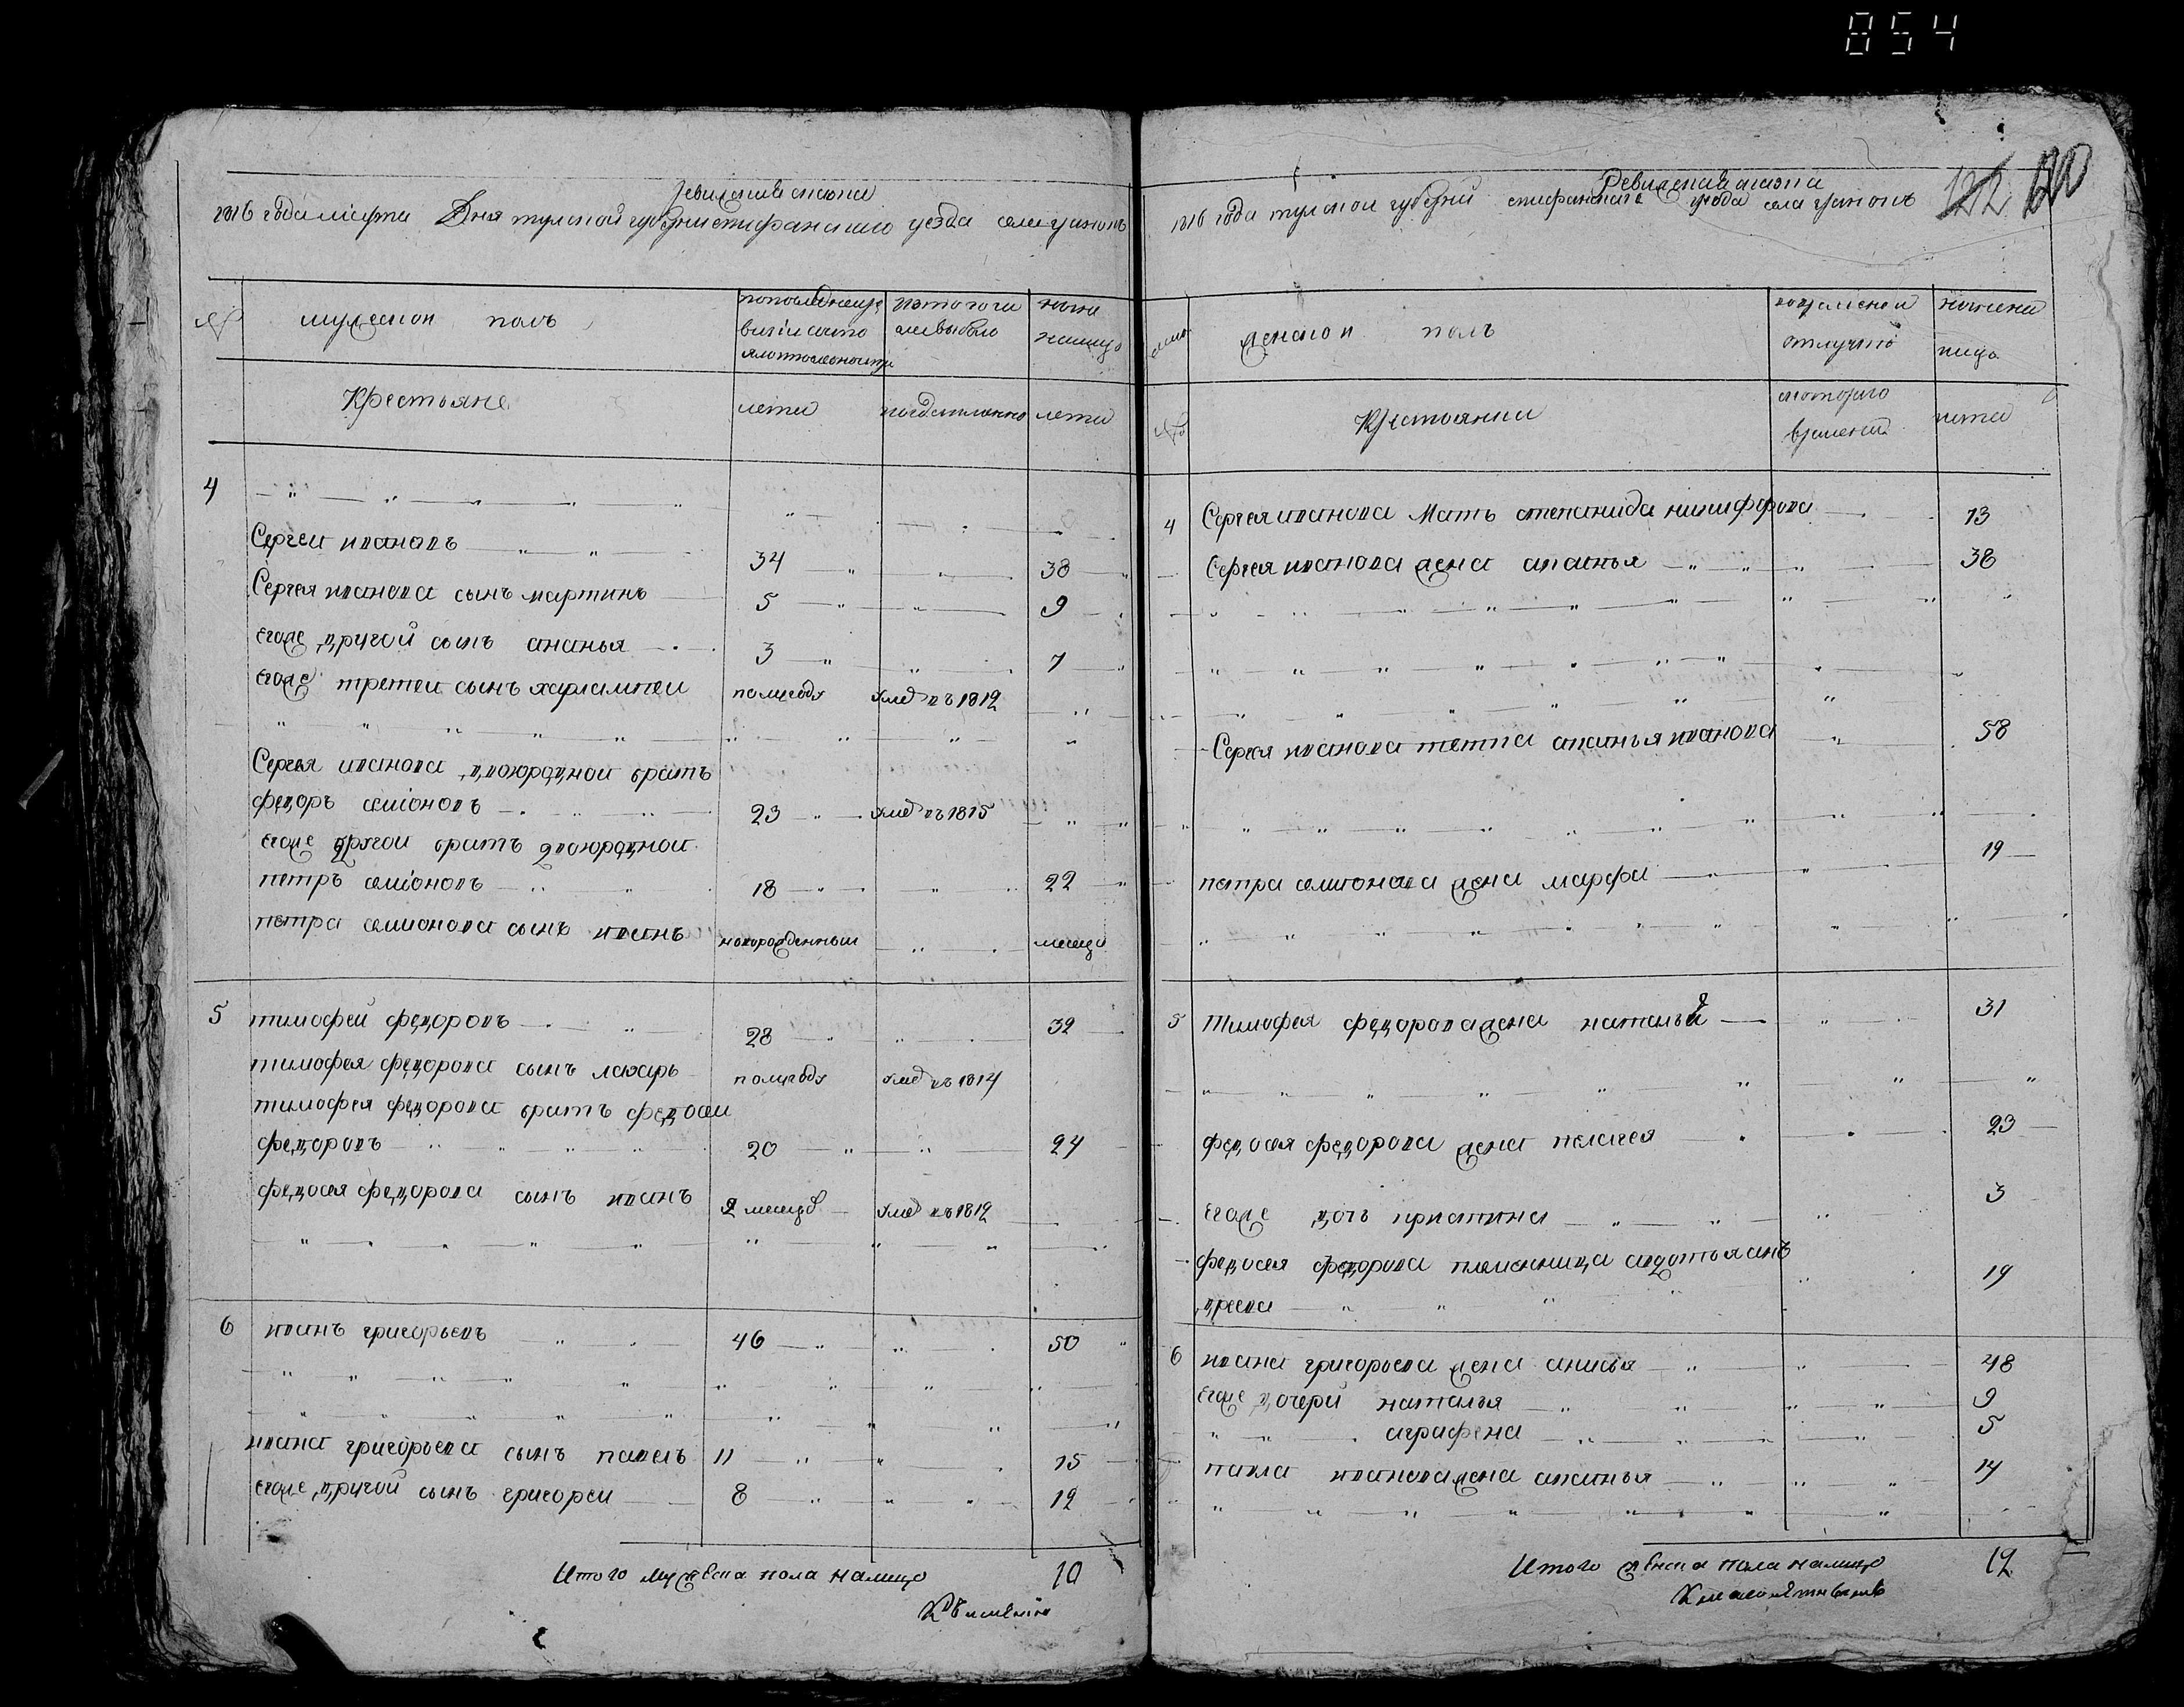 854
Ревижская сказка
1816 года марта Дня тулской губерни епифанского уезда села
№ мужескои полъ
Крестьяне
лета
лета
4
Сергеи ивановъ 34 38
Сергея иванова сынъ мартинъ 5 9
егоже другой сынъ ананья 3 7
егоже третеи сынъ харлампеи полугоду умре въ 1812
Сергея иванова двоюродной братъ
федоръ семіоновъ 23 умре въ 1815
егоже другои братъ двоюродной
петръ семіоновъ 18 22
петра семионова сынъ иванъ новорожденныи месяца
5 тимофей федоровъ 28 32
тимофея федорова сынъ лазарь полугоду умре въ 1814
тимофея федорова братъ федосеи
федоровъ 20 24
федосея федорова сынъ иванъ 2 месяцов умре въ 1812
6 иванъ григорьевъ 46 50
ивана григорьева сынъ павелъ 11 15
егоже другой сынъ григореи 8 12
Итого мужеска пола налицо 10
122 120
Ревижская сказка
1816 года тулскои губернии епифанскаго уезда села
женскои полъ
Крестьянки
которого
времени
лета
4 Сергея иванова Мать степанида никифорова 73
Сергея иванова жена агапья 38
Сергея иванова тетка агапья иванова 58
петра семионова жена марфа 19
5 Тимофея федорова жена наталья 31
федосея федорова жена пелагея 23
егоже дочь христина 3
федосея федорова племянница авдотья анъ
дреева 19
6 ивана григорьева жена анисья 48
егоже дочери наталья 9
аграфена 5
павла иванова жена агапья 14
Итого женска пола налицо 12